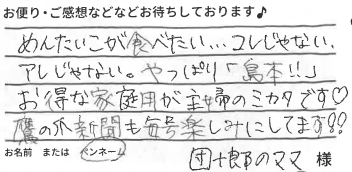 お便り・ご感想などなどお待ちしております♪
めんたいこが食べたい…コレじゃない、
アレじゃない。やっぱり「島本!!」
お得な家庭用が主婦のミカタです♡
鷹の爪新聞も毎号楽しみにしてます!!
お名前 または ペンネーム 団十郎のママ 様